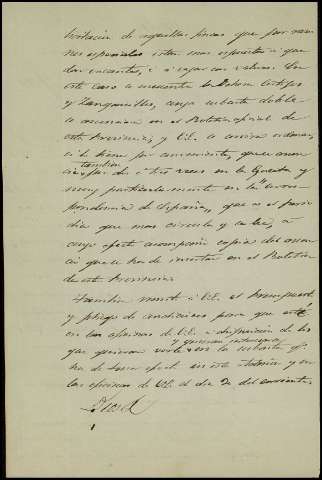 licitacion de aquellas fincas que por razo
nes especiales estan mas espuestas a que
dar vacantes, ó a sacar con valores. En
este caso se encuentra la Dehesa
y Zanganillas, cuya subasta doble
se anunciará en el Boletin oficial de
esta Provincia, y V.E. se servirá ordenar,
si lo tiene por conveniente, que se anun
cie tambien por dos ó tres veces en la Gaceta y
muy particularmente en la "Corres
pondencia de España", que es el perió
dico que mas circula y se lee, á
cuyo efecto acompaño copia del anun
cio que se ha de insertar en el Boletin
de esta Provincia.
Tambien remito á V.E. el Presupuesto
y pliego de condiciones para que esté
en las oficinas de V.E. a disposicion de los
que quieran verlo y quieran interesarse en la subasta qe.
ha de tener efecto en esta Admon. y en
las oficinas de V.E. el dia 20 del corriente.